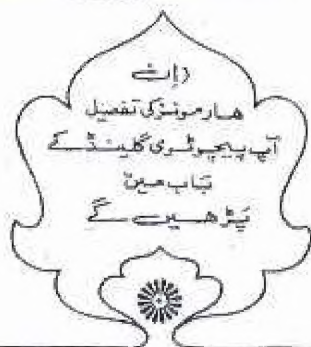 (اِن
ھارمونز کی تفصیل
آپ پیچوٹری گلینڈ کے
باب میں
پڑھیں گے